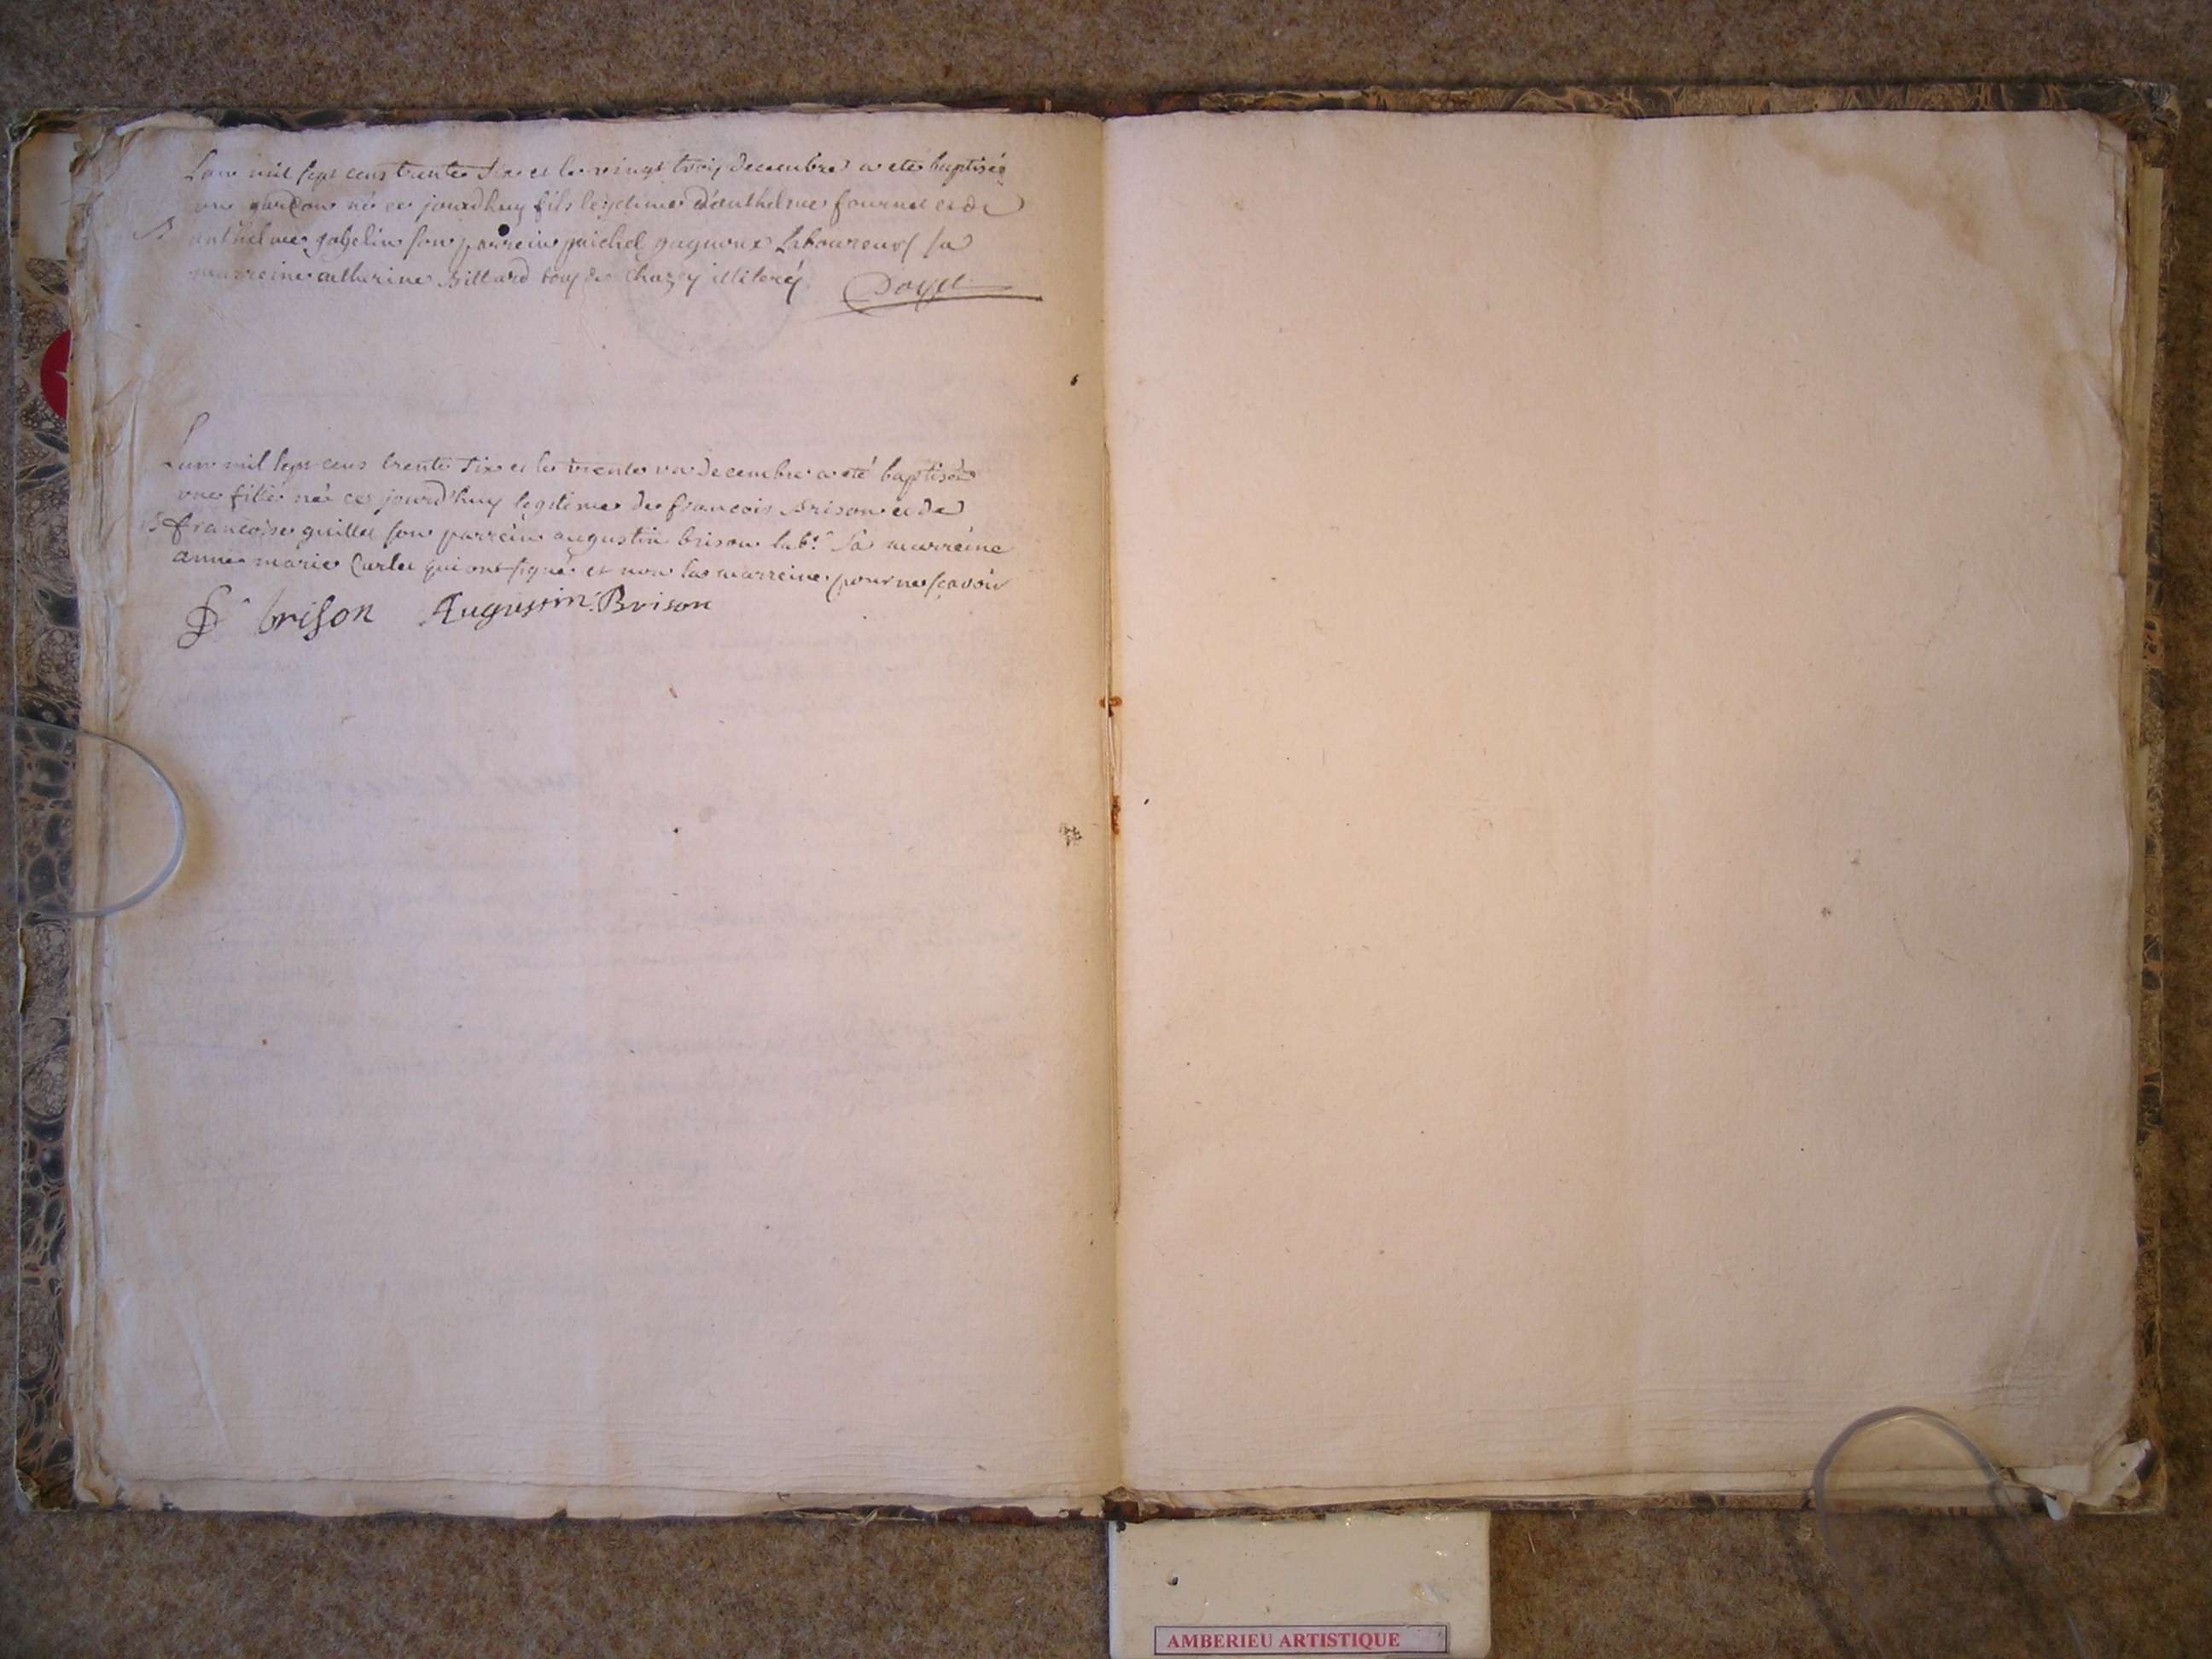 Lan mil sept cens trente six et le vingt trois decembre a eté baptisé
un garcon né ce jourdhuy fils legitime d'anthelme fournet et de
B anthelme gobelin son parrein michel gagneux laboureurs sa
marreine catherine Billard tous de Chazey illiterés Doyet
Lan mil sept cens trente six et le trente un decembre a eté baptisée
une fille née ce jourd'huy legitime de francois Brison et de
B francoise guillet son parrein augustin brison lab.r sa marreine
anne marie Curlet qui ont signé et non la marreine pour ne scavoir
fr brison Augustin Brison
AMBERIEU ARTISTIQUE